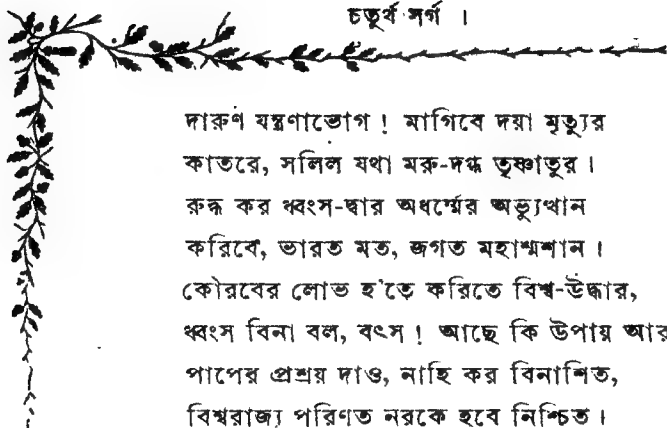 চতুর্থ সর্গ ।
দারুণ যন্ত্রণাভোগ ! মাগিবে দয়া মৃত্যুর
কাতরে, সলিল যথা মরু-দগ্ধ তৃষ্ণাতুর ।
রুদ্ধ কর ধ্বংস-দ্বার অধর্ম্মের অভ্যুত্থান
করিবে, ভারত মত, জগত মহাশ্মশান ।
কৌরবের লোভ হ'তে করিতে বিশ্ব-উদ্ধার,
ধ্বংস বিনা বল, বৎস ! আছে কি উপায় আর
পাপের প্রশ্রয় দাও, নাহি কর বিনাশিত,
বিশ্বরাজ্য পরিণত নরকে হবে নিশ্চিত ।